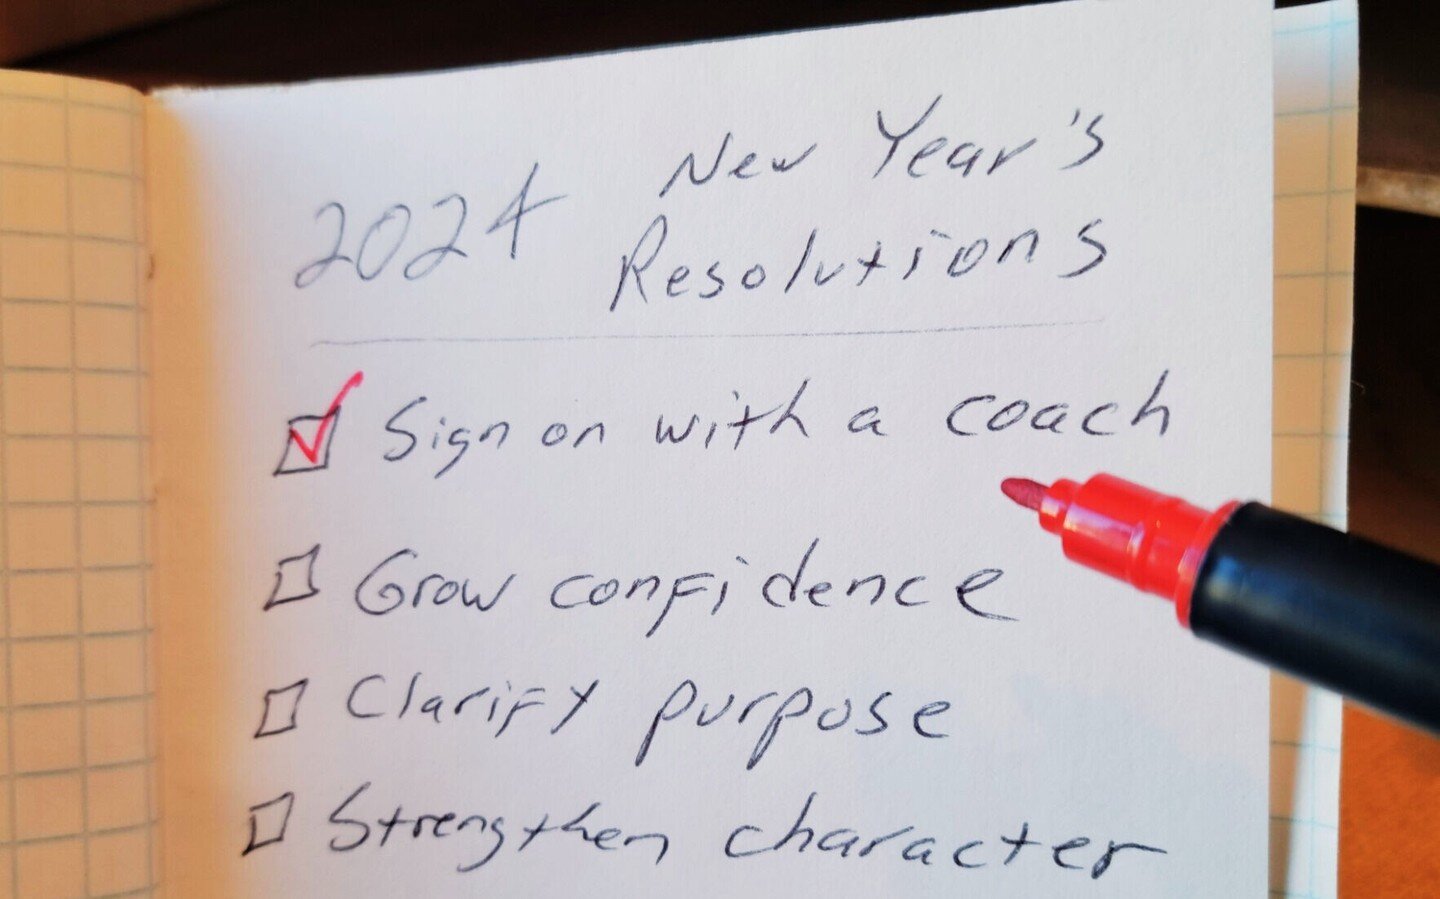 2024 New Year's
Resolutions
Sign on with a coach
Grow confidence
Clarify purpose
Strengthen character